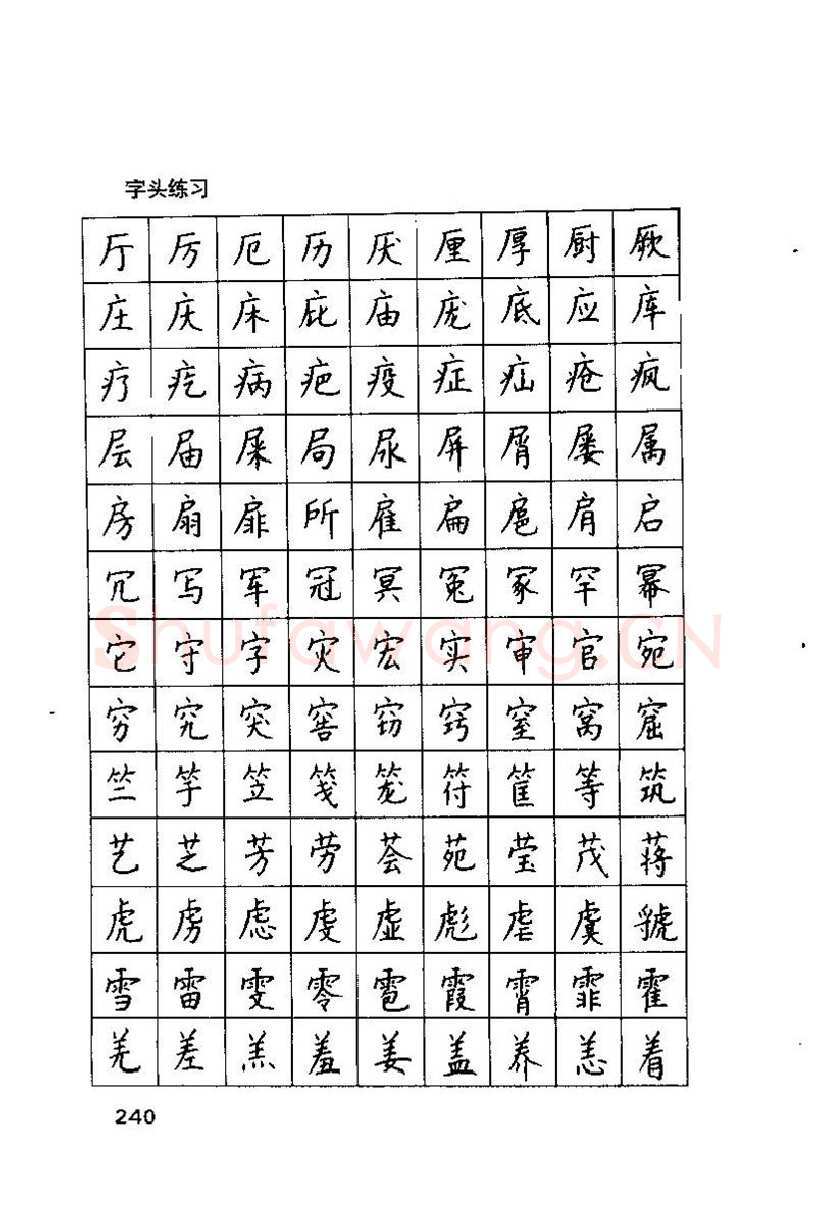 字头练习
厅 厉 厄 历 厌 厘 厚 厨 厥
庄 庆 床 庇 庙 庞 底 应 库
疗 疙 病 疤 疫 症 疝 疮 疯
层 届 屎 局 尿 屏 屑 屡 属
房 扇 扉 所 雇 扁 扈 肩 启
冗 写 军 冠 冥 冤 冢 罕 幂
它 守 字 灾 宏 实 审 官 宛
穷 究 突 窖 窃 窍 窒 窝 窟
竺 竽 笠 笺 笼 符 筐 等 筑
艺 芝 芳 劳 荟 苑 莹 茂 蒋
虎 虏 虑 虔 虚 彪 虐 虞 虢
雪 雷 雯 零 雹 霞 霄 霏 霍
羌 差 羔 羞 姜 盖 养 恙 着
240
Shufawang.CN